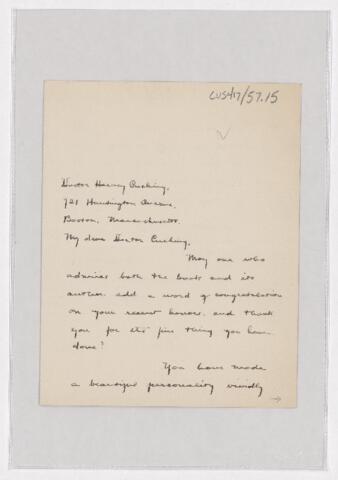 CUS417/57.15
Doctor Harvey Cushing,
721 Huntington Avenue,
Boston, Massachusetts.
My dear Doctor Cushing,
May one who
admires both the book and its
author add a word of congratulation
on your recent honors, and thank
you for the fine thing you have
done?
You have made
a beautiful personality vividly
→